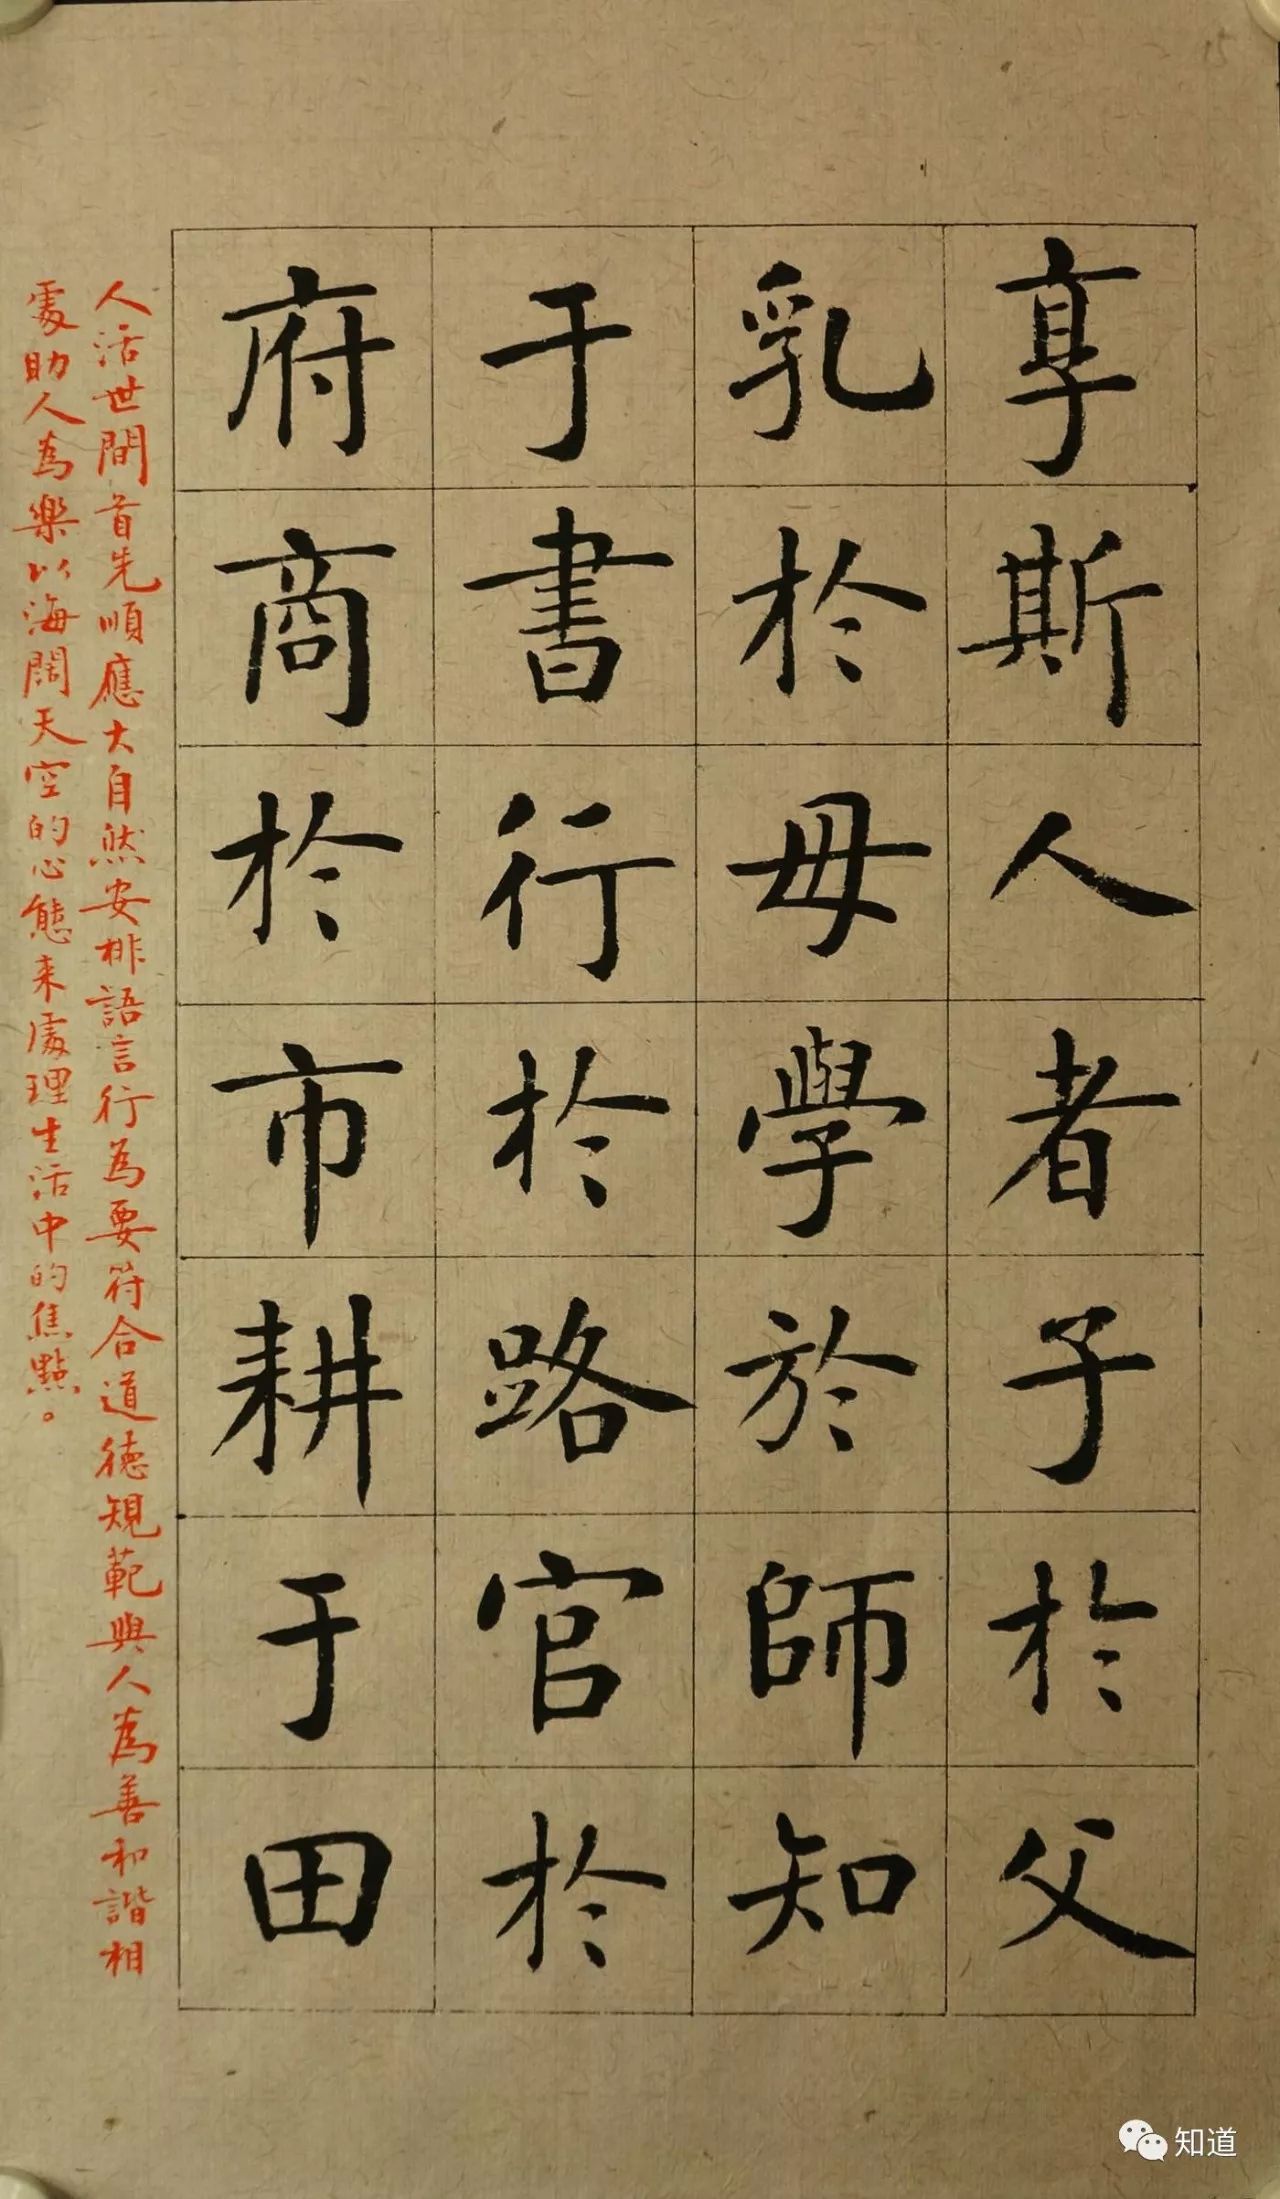 享斯人者子於父
乳於母學於師知
于書行於路官於
府商於市耕于田
人活世間首先順應大自然安排語言行為要符合道德規範與人為善和諧相
處助人為樂以海闊天空的心態来處理生活中的焦點。
知道